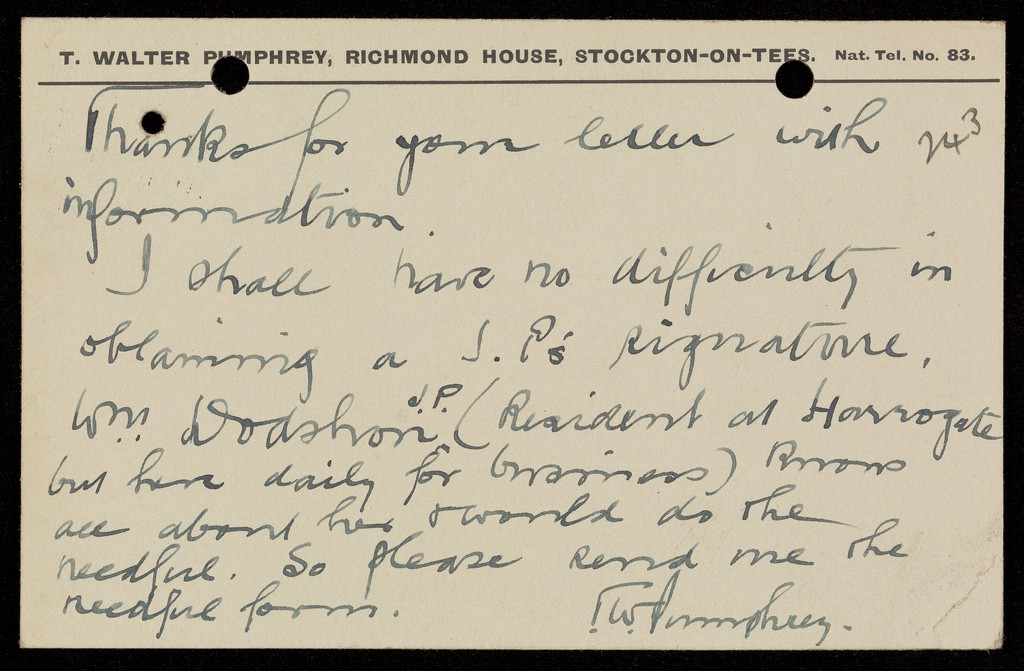 T. WALTER PUMPHREY, RICHMOND HOUSE, STOCKTON-ON-TEES. Nat. Tel. No. 83.
Thanks for your letter with
information.
I shall have no difficulty in
obtaining a J.P's signature,
Wm Dodshon J.P. (Resident at Harrogate
but here daily for business) knows
all about her & would do the
needful. So please send me the
needful form.
T.W. Pumphrey.